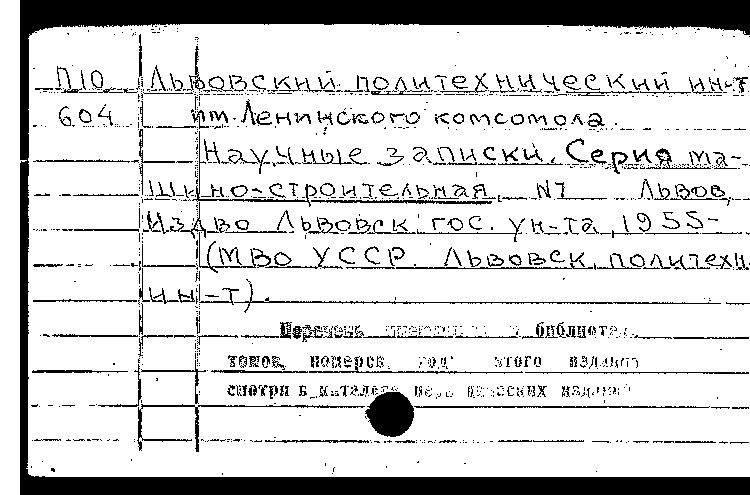 П10 Львовский политехнический ин-т
604 им. Ленинского комсомола.
Научные записки. Серия ма-
шино-строительная, N1 Львов,
Изд-во Львовск. гос. ун-та, 1955-
(МВО УССР. Львовск. политехн.
ин-т).
Перечень имеющихся в библиотеке
томов, номеров, год этого издания
смотри в каталоге периодических изданий